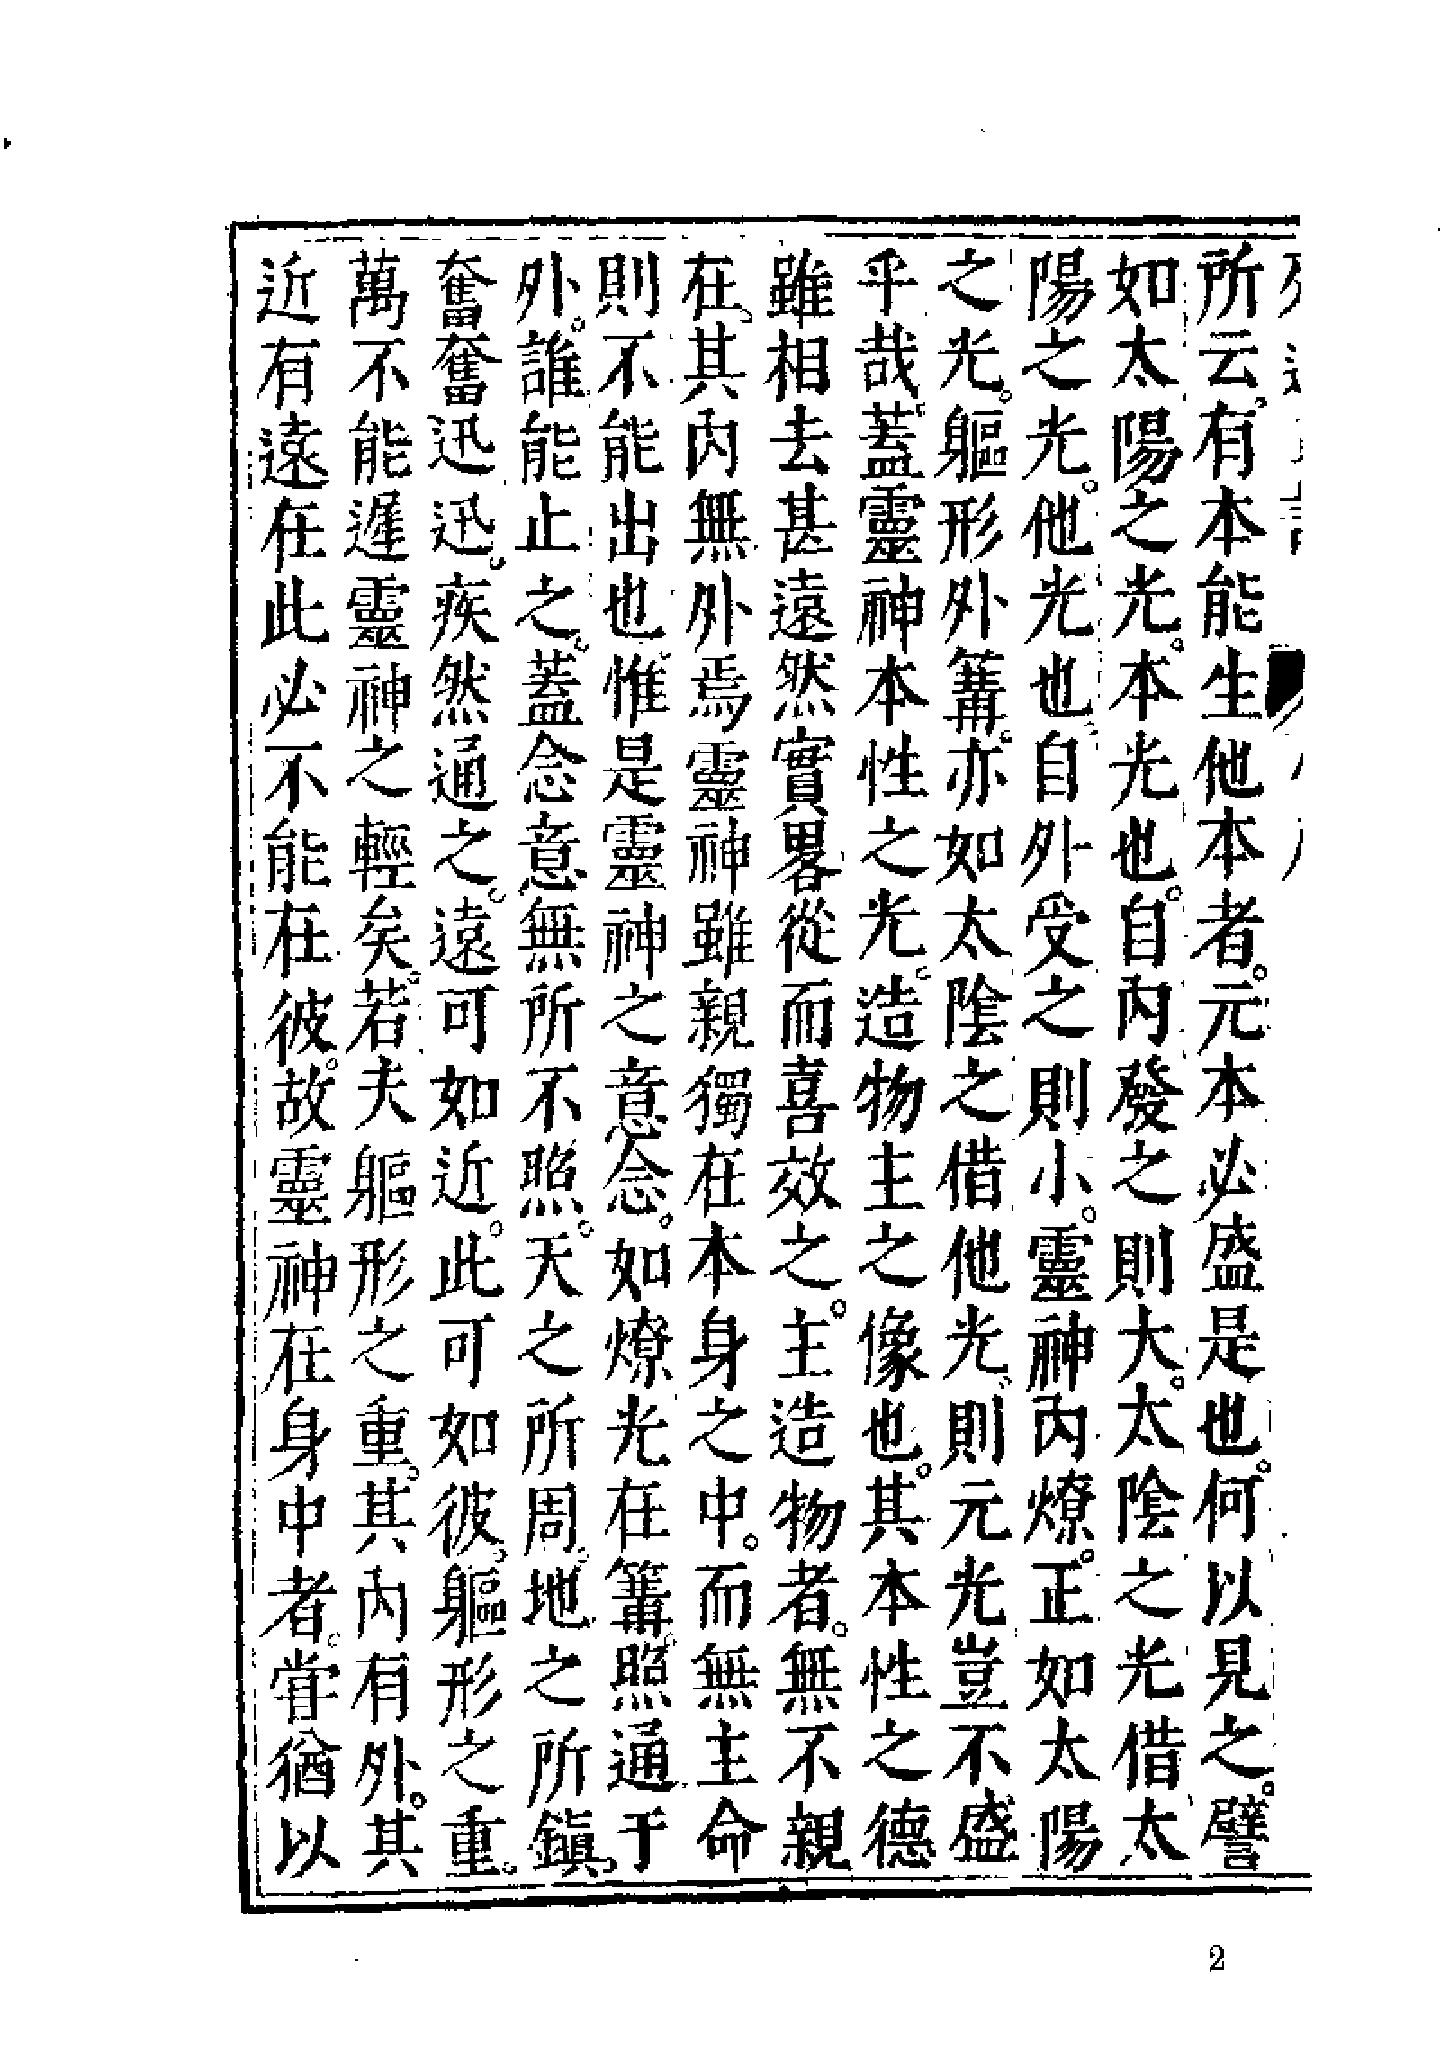 所云有本能生他本者。元本必盛是也。何以見之。譬
如太陽之光。本光也。自內發之則大。太陰之光借太
陽之光。他光也自外受之則小。靈神內燎。正如太陽
之光。軀形外篝。亦如太陰之借他光。則元光豈不盛
乎哉。蓋靈神本性之光。造物主之像也。其本性之德
雖相去甚遠然實畧從而喜效之。主造物者。無不親
在。其內無外焉靈神雖親獨在本身之中。而無主命
則不能出也。惟是靈神之意念。如燎光在篝。照通于
外。誰能止之。蓋念意無所不照。天之所周。地之所鎮。
奮奮迅迅。疾然通之。遠可如近。此可如彼。軀形之重。
萬不能遲靈神之輕矣。若夫軀形之重。其內有外。其
近有遠在此必不能在彼。故靈神在身中者。甞猶以
2